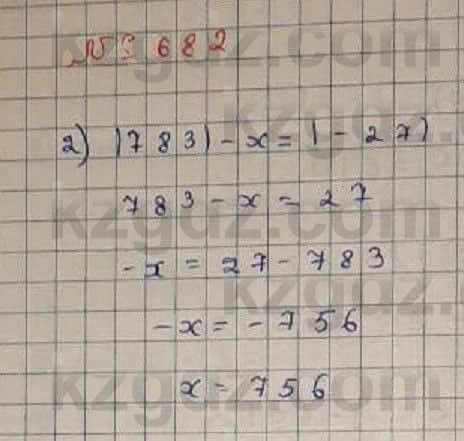 № 682
2) |783| - x = | - 27|
783 - x = 27
-x = 27 - 783
-x = -756
x = 756
kzgdz.com
kzgdz.com
kzgdz.com
kzgdz.com